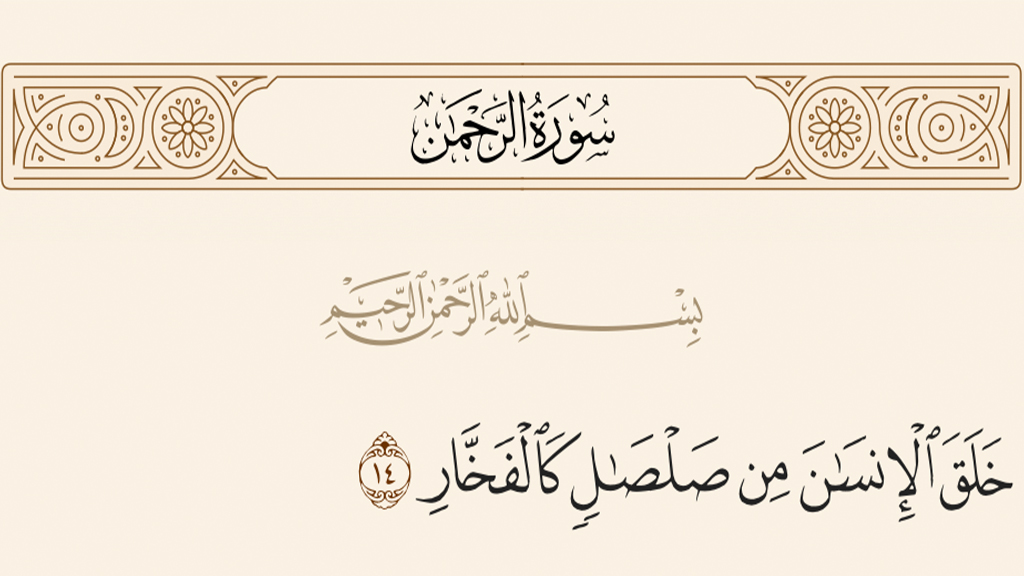 سُورَةُ الرَّحْمَٰن
بِسْمِ ٱللَّهِ ٱلرَّحْمَٰنِ ٱلرَّحِيمِ
خَلَقَ ٱلْإِنسَـٰنَ مِن صَلْصَـٰلٍ كَٱلْفَخَّارِ ١٤